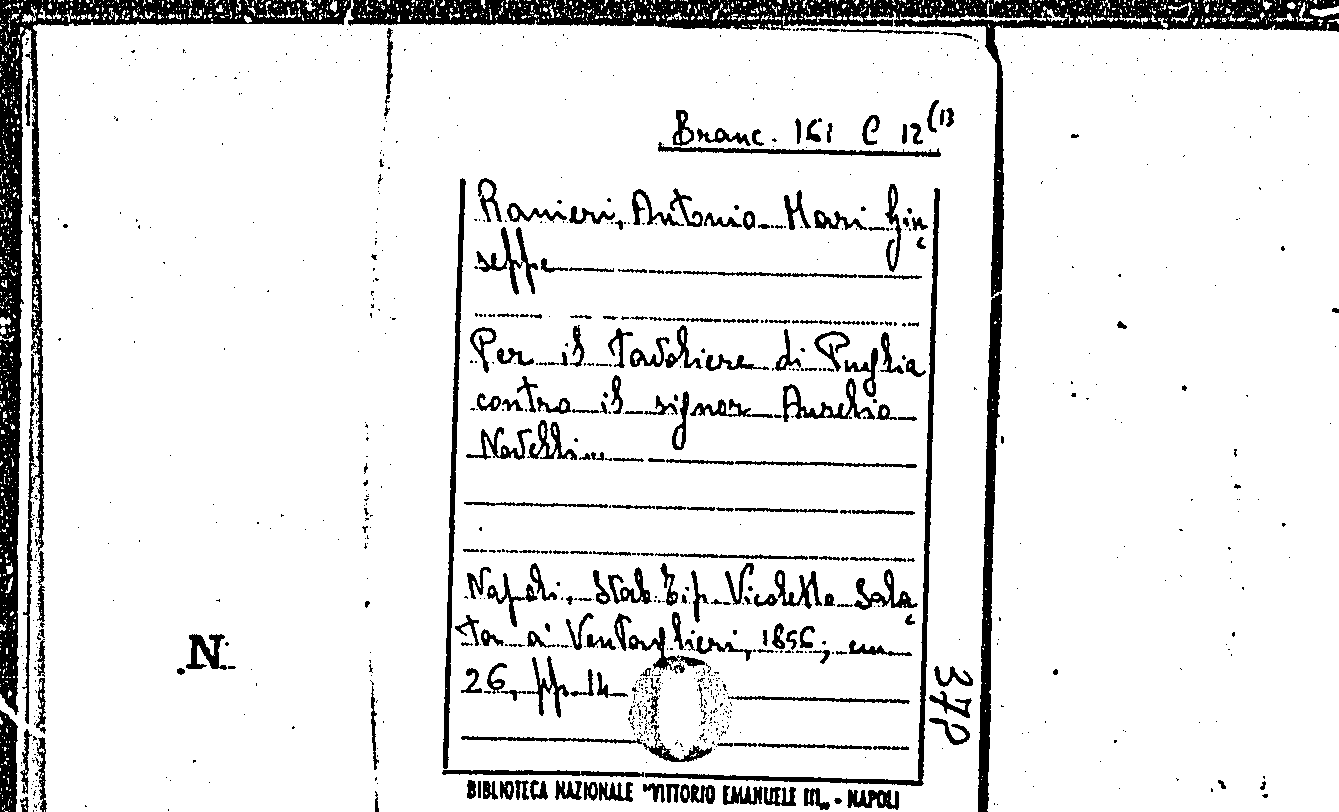 Branc. 161 C 12(13
Ranieri, Antonio - Mari Giu
seppe
Per il tavoliere di Puglia
contro il signor Aurelio
Novelli
Napoli, Stab. Tip. Vicoletto Sala
ta a' Ventaglieri, 1856; cm
26, pp. 14
N.
378
BIBLIOTECA NAZIONALE "VITTORIO EMANUELE III„ - NAPOLI